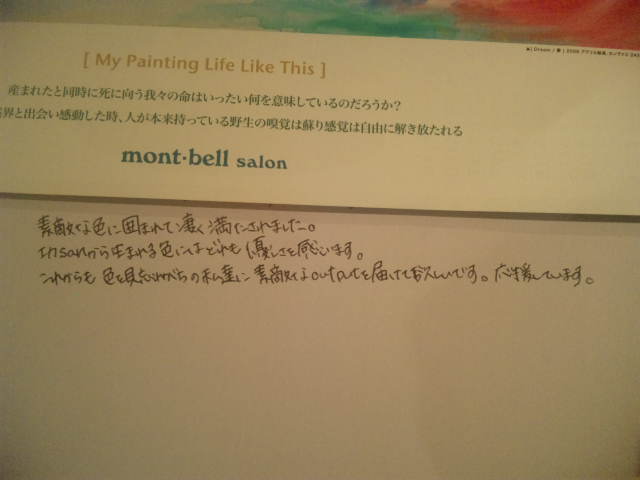 [ My Painting Life Like This ]
産まれたと同時に死に向う我々の命はいったい何を意味しているのだろうか?
界と出会い感動した時、人が本来持っている野生の嗅覚は蘇り感覚は自由に解き放たれる
mont·bell salon
素敵な色に囲まれて凄く満たされました。
から生まれる色にはどれも優しさを感じます。
これからも色を見忘れがちの私達に素敵なoutputを届けて欲しいです。応援しています。